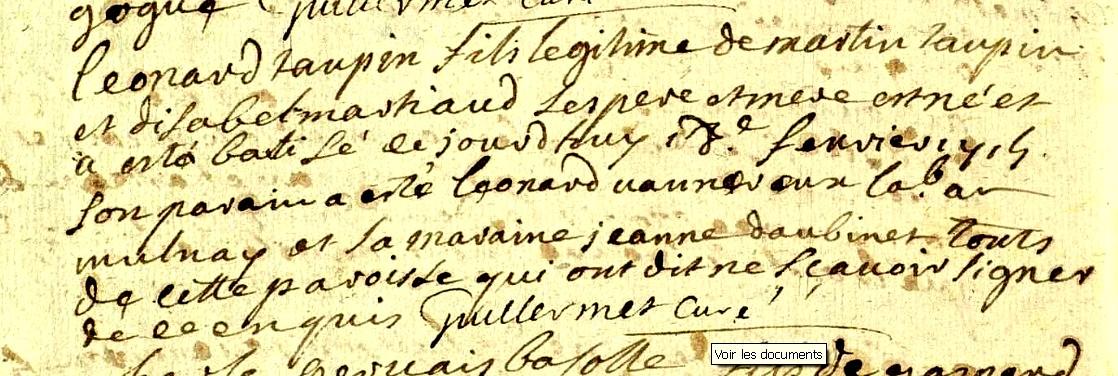 gogue Pullermet Curé
leonard taupin fils legitime de martin taupin
et disabel martiaud ses pere et mere est né et
a esté batisé ce jourdhuy 18.e fevrier 1715
son parain a esté leonard vannereux lab.r au
mulnay et la maraine jeanne daubinet touts
de cette paroisse qui ont dit ne sçavoir signer
de ce enquis Pullermet Curé
gervais basolle fils de
Voir les documents